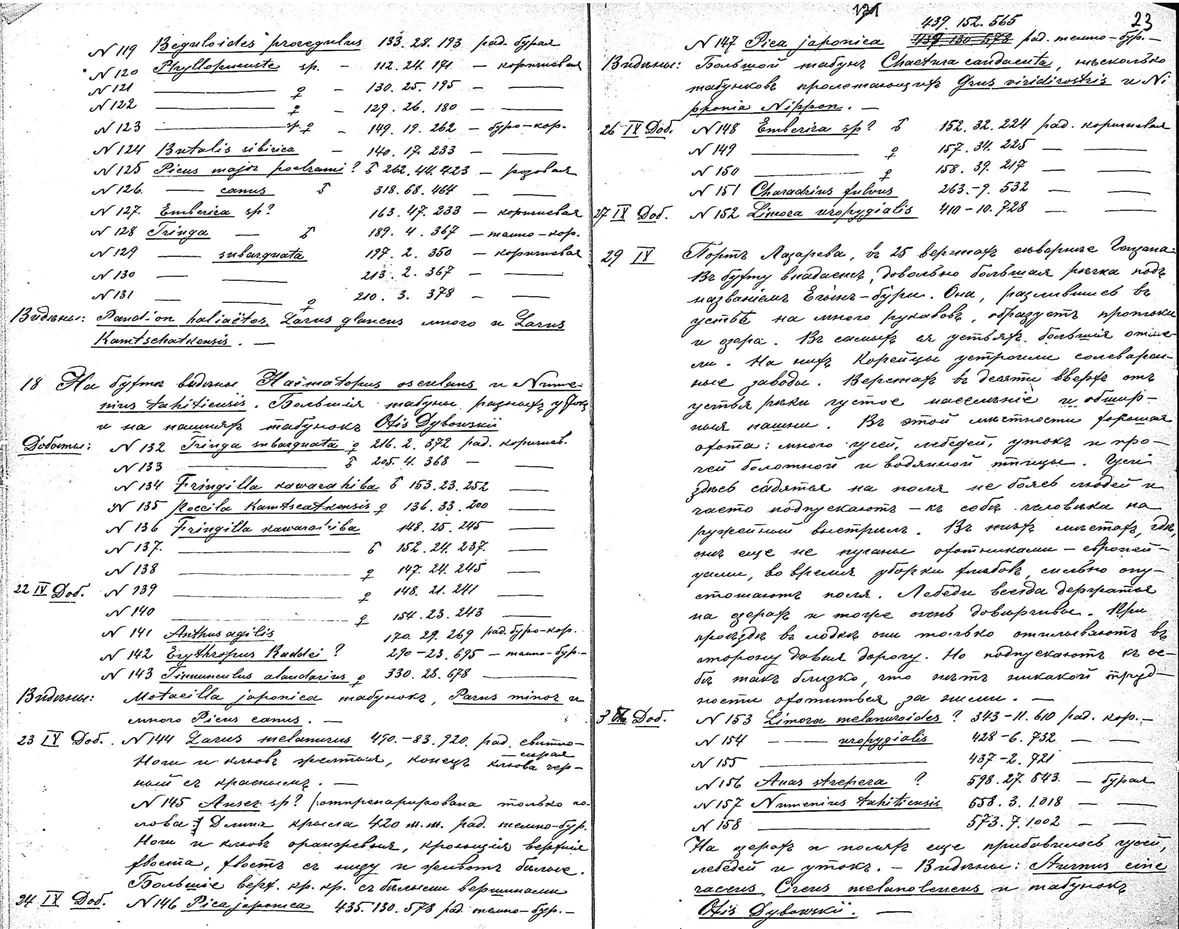 N 119 Reguloides proregulus 133. 28. 193 рад. бурая
N 120 Phyllopneuste sp. – 112. 24. 171 – коришевая
N 121 —— ♀ – 130. 25. 195 – ——
N 122 —— ♀ – 129. 26. 180 – ——
N 123 —— sp ♀ – 149. 19. 262 – буро-кор.
N 124 Butalis sibirica – 140. 17. 233 – ——
N 125 Picus major 262. 44. 423 –
N 126 —— canus ♂ 318. 68. 464 – ——
N 127. Emberiza sp? 163. 47. 233 – коришевая
N 128 Tringa — ♂ 189. 4. 367 – темно-кор.
N 129 —— subarquata 197. 2. 350 – коришевая
N 130 — —— 213. 2. 367 – ——
N 131 — —— ♀ 210. 3. 378 – ——
Видѣны: Pandion haliaëtos, Larus glaucus много и Larus
Kamtschatkensis. —
18 На бухтѣ видѣны Haimatopus osculans и Nume-
nius tahitiensis. Большiя табуны разныхъ
и на пашняхъ табунокъ Otis Dybowskii
Добыты: N 132 Tringa subarquata ♀ 216. 2. 372 рад. коришев.
N 133 —— ♂ 205. 4. 368 – ——
N 134 Fringilla kawarahiba ♂ 153. 23. 252 ——
N 135 Poecila Kamtscatkensis ♀ 136. 33. 200 ——
N 136 Fringilla kawarahiba 148. 25. 245 ——
N 137. —— ♂ 152. 24. 237. ——
N 138 —— ♀ 147. 24. 245 ——
22 IV Доб. N 139 —— ♀ 148. 21. 241 ——
N 140 —— ♀ 154. 23. 243 ——
N 141 Anthus agilis 170. 29. 269 рад. буро-кор.
N 142 Erythropus Raddei ? 290-23. 695 – темно-бур.–
N 143 Tinnunculus alaudarius ♀ 330. 28. 678 ——
Видѣны: Motacilla japonica табунокъ, Parus minor и
много Picus canus. —
23 IV Доб. N 144 Larus melanurus 490.–83. 920. рад. свѣтло-
сѣрая
Ноги и клювъ желтыя, конецъ клюва чер-
ный съ краснымъ. —
N 145 Anser sp? (отпрепарирована только го-
лова) Длина крыла 420 m.m. рад. темно-бур.
Ноги и клювъ оранжевыя, кроющiя верхнiя
хвоста, хвостъ съ низу и животъ бѣлые.
Большiе верх. кр. кр. съ бѣлыми вершинами
24 IV Доб. N 146 Pica japonica 435. 130. 578 рад. темно-бур.–
131 23
439 152. 565
N 147 Pica japonica 439 130 573 рад. темно-бур.–
Видѣны: Большой табунъ Chaetura caudacuta, нѣсколько
табунковъ пролетающихъ Grus viridirostris и Ni
pponia Nippon. —
26 IV Доб. N 148 Emberiza sp? ♂ 152. 32. 224 рад. коришевая
N 149 —— ♀ 157. 34. 225 — ——
N 150 —— ♀ 158. 39. 217 — ——
N 151 Charadrius fulvus 263–9. 532 — ——
27 IV Доб. N 152 Limosa uropygialis 410–10. 728 — ——
29 IV Портъ Лазарева, въ 25 верстахъ сѣвернѣе
Въ бухту впадаетъ, довольно большая рѣчка подъ
названiемъ Она, разлившись въ
устьѣ на много рукавовъ, образуетъ протоки
и озера. Въ самыхъ ея устьяхъ большiя отме-
ли. На нихъ Корейцы устроили солеварен-
ные заводы. Верстахъ въ десяти вверхъ отъ
устья рѣки густое населенiе и обшир-
ныя пашни. Въ этой мѣстности хорошая
охота: много гусей, лебедей, утокъ и про-
чей болотной и водянной птицы. Гуси
здѣсь садятся на поля не боясь людей и
часто подпускаютъ – къ собѣ человѣка на
ружейный выстрѣлъ. Въ тѣхъ мѣстахъ, гдѣ
онѣ еще не пуганы охотниками – европей-
цами, во время уборки хлѣбовъ, сильно опу-
стошаютъ поля. Лебеди всегда держатся
на озерахъ и тоже очень довѣрчивы. При
проѣздѣ въ лодкѣ они только отплываютъ въ
сторону давая дорогу. Но подпускаютъ къ се-
бѣ такъ близко, что нѣтъ никакой труд-
ности охотиться за ними. —
3 Доб. N 153 Limosa melanuroides ? 343–11. 610 рад. кор.–
N 154 —— uropygialis 428–6. 732 — ——
N 155 —— 437–2. 921 — ——
N 156 Anas strepera ? 598. 27. 843. – бурая
N 157 Numenius tahitiensis 658. 3. 1.018 — ——
N 158 —— 573. 7. 1002 — ——
На озерахъ и поляхъ еще прибавилось гусей,
лебедей и утокъ. – Видѣны: Sturnus cine
raceus, Circus melanoleucus и табунокъ
Otis Dybowskii. —